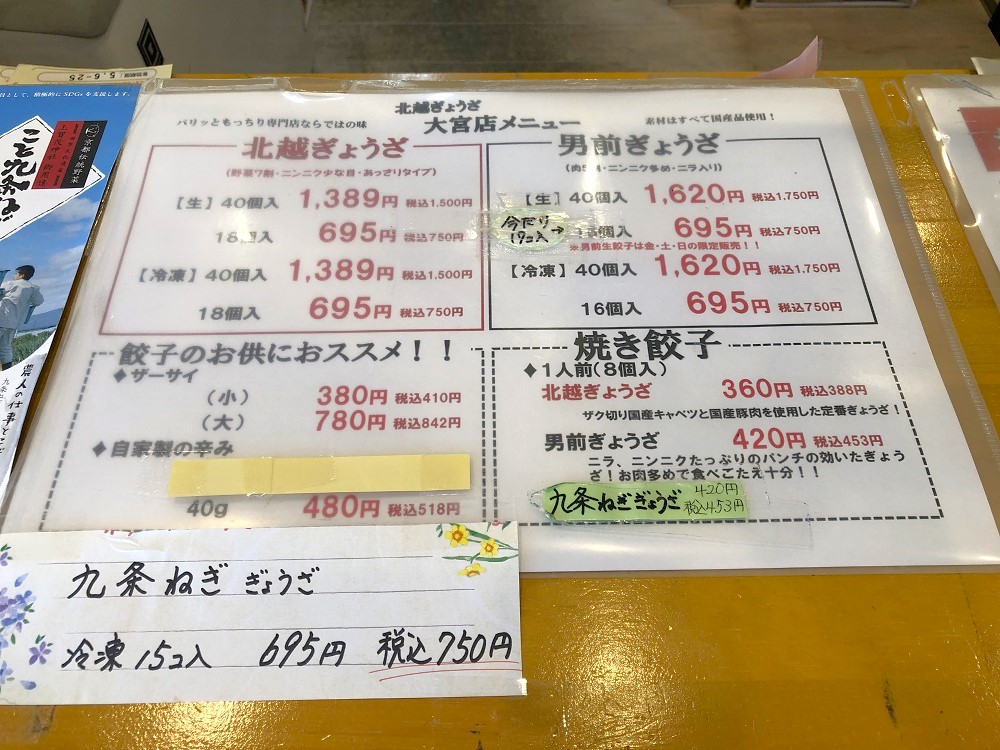 5.6-25
目として、積極的にSDGsを支援します。
京都伝統野菜
こと九条ねぎ
北越ぎょうざ
パリッともっちり専門店ならではの味
大宮店メニュー
素材はすべて国産品使用！
北越ぎょうざ
(野菜7割・ニンニク少な目・あっさりタイプ)
【生】40個入 1,389円 税込1,500円
18個入 695円 税込750円
【冷凍】40個入 1,389円 税込1,500円
18個入 695円 税込750円
男前ぎょうざ
・ニンニク多め・ニラ入り)
【生】40個入 1,620円 税込1,750円
今だけ
19コ入→
個入 695円 税込750円
※男前生餃子は金・土・日の限定販売！！
【冷凍】40個入 1,620円 税込1,750円
16個入 695円 税込750円
餃子のお供におススメ！！
◆ザーサイ
(小) 380円 税込410円
(大) 780円 税込842円
◆自家製の辛み
40g 480円 税込518円
焼き餃子
◆1人前(8個入)
北越ぎょうざ 360円 税込388円
ザク切り国産キャベツと国産豚肉を使用した定番ぎょうざ！
男前ぎょうざ 420円 税込453円
ニラ、ニンニクたっぷりのパンチの効いたぎょう
ざ！お肉多めで食べごたえ十分！！
九条ねぎぎょうざ 420円
税込453円
九条ねぎ ぎょうざ
冷凍 15コ入 695円 税込750円